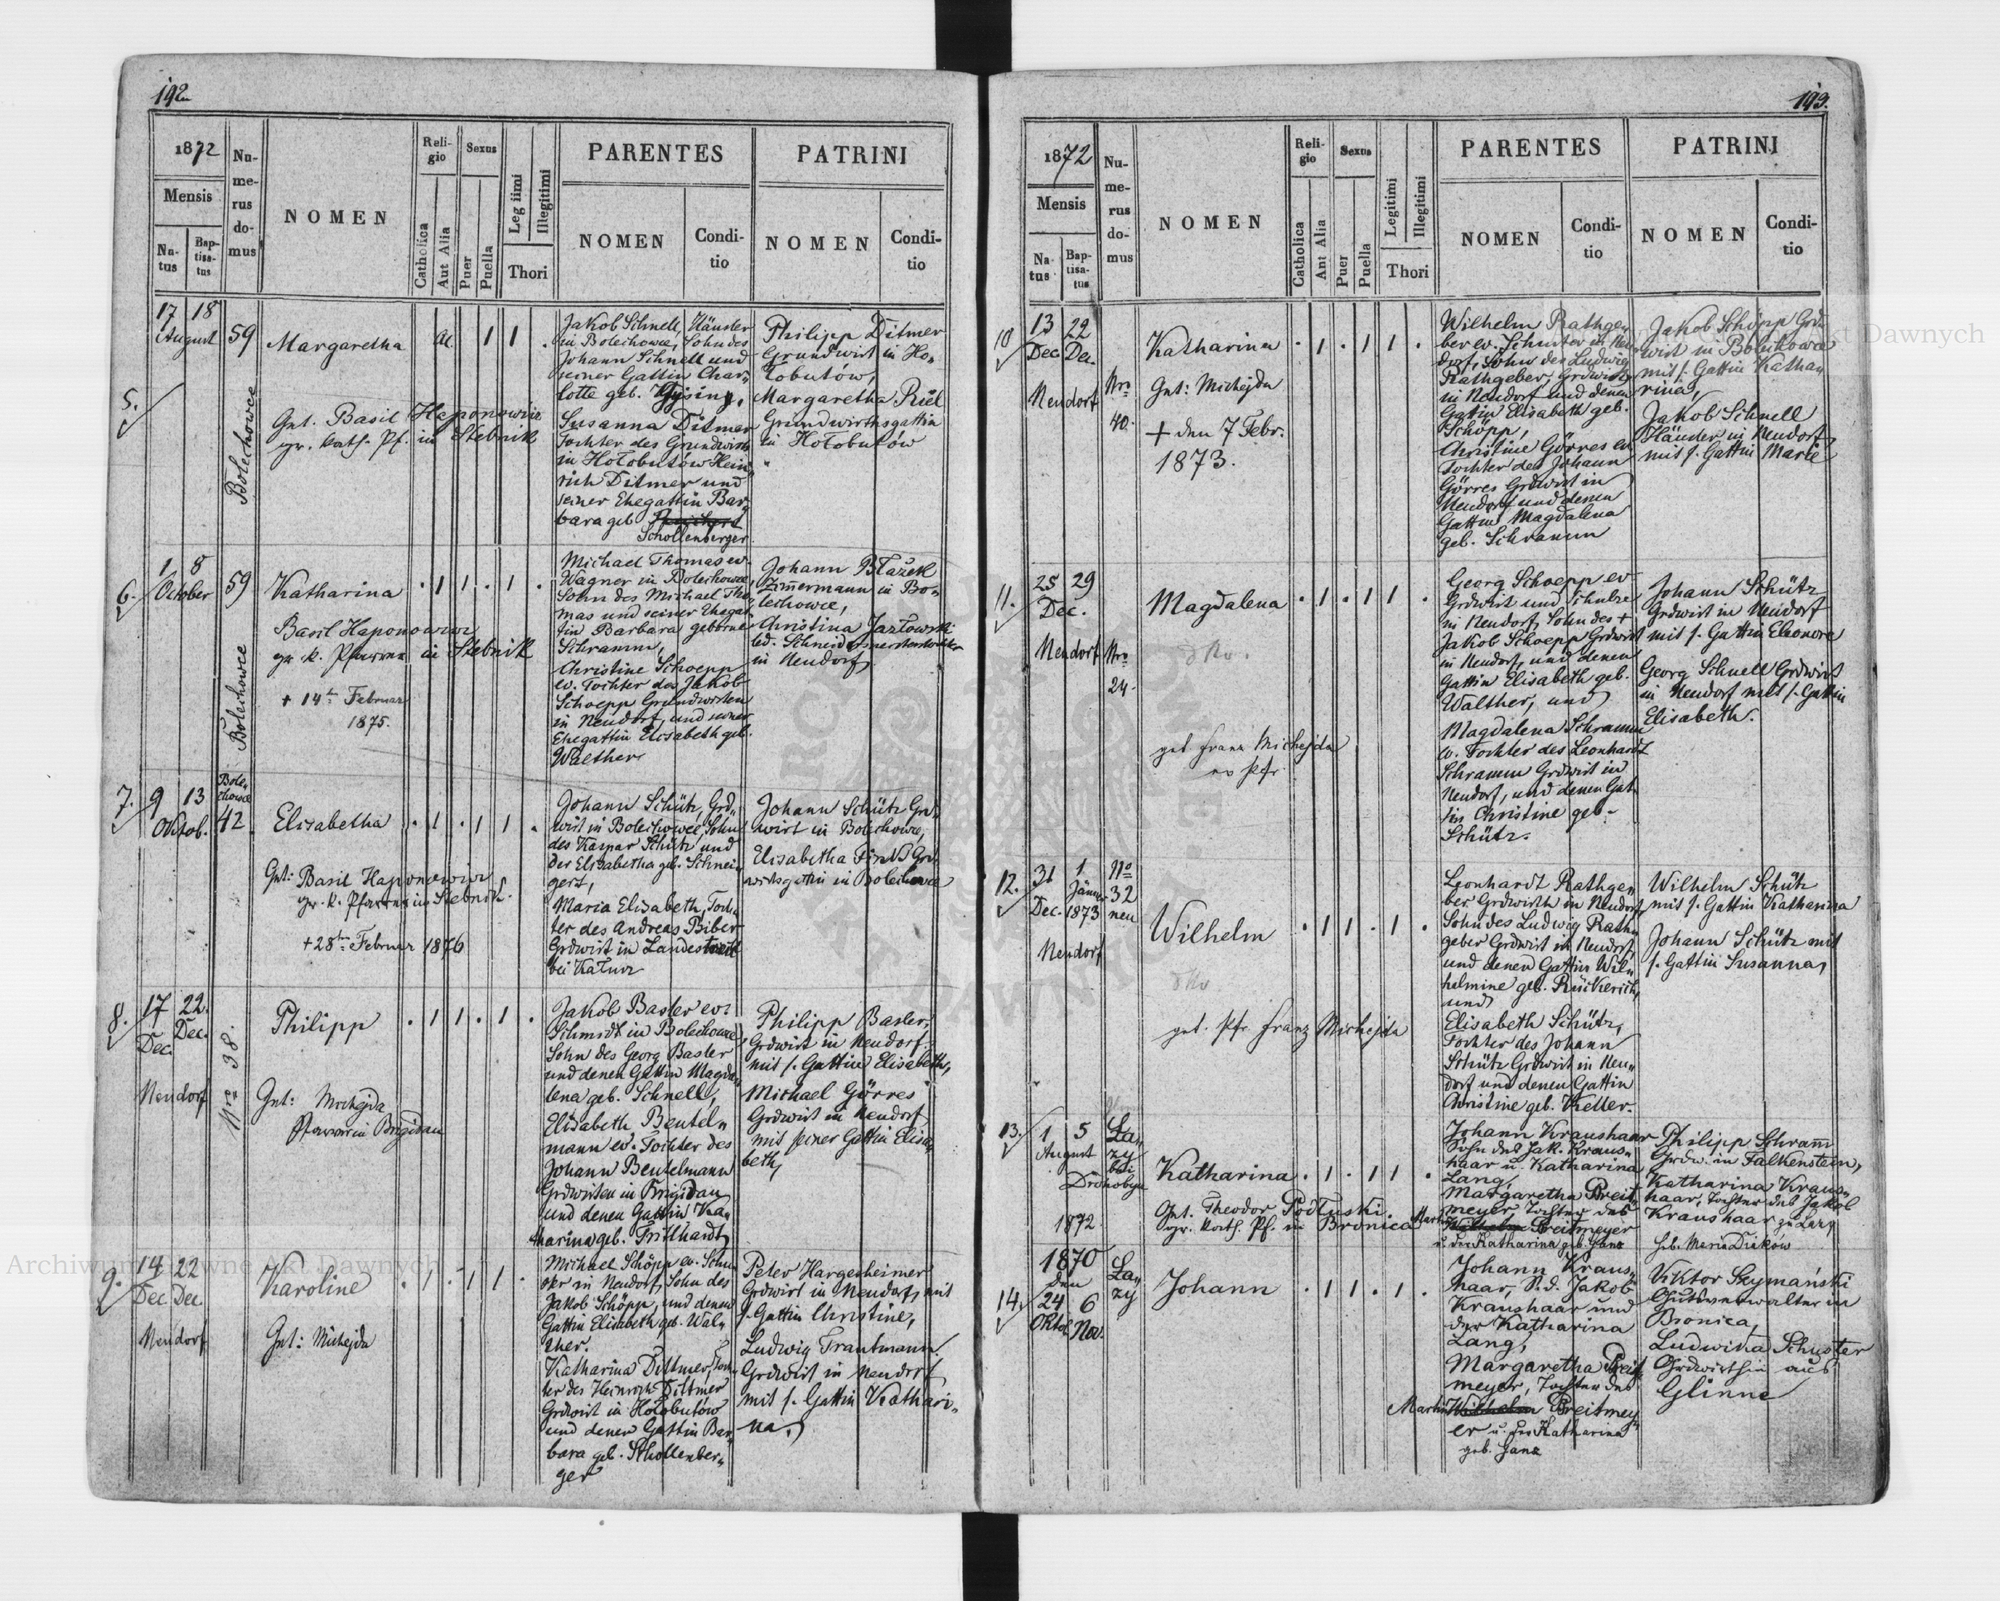 192
1872
Mensis
Na-
tus
Bap-
tisa-
tus
Nu-
me-
rus
do-
mus
NOMEN
Reli-
gio
Catholica
Aut Alia
Sexus
Puer
Puella
Leg iimi
Illegitimi
Thori
PARENTES
NOMEN
Condi-
tio
PATRINI
NOMEN
Condi-
tio
5.
17 18
August
59
Bolechowce
Margaretha
Gnt. Basil Haponowicz
gr. kath. Pf. in Stebnik
Jakob Schnell, Häusler
in Bolechowce, Sohn des
Johann Schnell und
seiner Gattin Char-
lotte geb. Gysing,
Susanna Ditmer
Tochter des Grundwirth
in Hołobutów Hein
rich Ditmer und
seiner Ehegattin Bar,
bara geb
Schollenberger
Philipp Ditmer
Grundwirt in Ho-
łobutów,
Margaretha Riel
Grundwirthsgattin
in Hołobutów
6.
1. 8
October
59
Bolechowce
Katharina
Basil Haponowicz
gr. k. Pfarrer in Stebnik
+ 14ten Februar
1875.
Michael Thomas ev.
Wagner in Bolechowce,
Sohn des Michael Tho
mas und seiner Ehegat
tin Barbara geborne
Schramm,
Christine Schoepp
ev. Tochter des Jakob
Schoepp Grundwirten
in Neudorf, und seiner
Ehegattin Elisabeth geb.
Walther
Johann Blažek
Zimermann in Bo-
lechowce,
Christina Jazłowski
led. Schneidermeisterstochter
in Neudorf
7.
9 13
Oktob.
Bole-
chowce
42.
Elisabetha
Gnt: Basil Haponowicz
gr. k. Pfarrer in Stebnik.
+ 28ten Februar 1876
Johann Schütz, Grd-
wirt in Bolechowce, Sohn
des Kaspar Schütz und
der Elisabetha geb. Schnei
gert,
Maria Elisabeth, Toch-
ter des Andreas Biber
Grdwirt in Landestreit
bei Kałusz
Johann Schütz Grd-
wirt in Bolechowce,
Elisabetha Fink Grd-
wirtsgattin in Bolechowce
8.
17 22.
Dec. Dec.
Neudorf
Nro 38.
Philipp
Gnt: Michejda
Pfarrer in Brigidau
Jakob Basler ev.
Schmidt in Bolechowce,
Sohn des Georg Basler
und denen Gattin Magda-
lena geb. Schnell,
Elisabeth Beutel-
mann ev. Tochter des
Johann Beutelmann
Grdwirten in Brigidau
und denen Gattin Ka-
tharina geb. Frühhardt
Philipp Basler,
Grdwirt in Neudorf.
mit s. Gattin Elisabeth,
Michael Görres
Grdwirt in Neudorf
mit seiner Gattin Elisa-
beth,
9.
14 22
Dec. Dec.
Neudorf
Karoline
Gnt: Michejda
Michael Schöpp ev. Schu
ster in Neudorf, Sohn des
Jakob Schöpp, und denen
Gattin Elisabeth geb. Wal-
ther.
Katharina Dittmer, Toch-
ter des Heinrich Dittmer
Grdwirt in Hołobutów
und denen Gattin Bar-
bara geb. Schollenber-
ger
Peter Hargesheimer
Grdwirt in Neudorf, mit
s. Gattin Christine,
Ludwig Trautmann
Grdwirt in Neudorf
mit s. Gattin Kathari-
na,
193.
1872
Mensis
Na-
tus
Bap-
tisa-
tus
Nu-
me-
rus
do-
mus
NOMEN
Reli-
gio
Catholica
Aut Alia
Sexus
Puer
Puella
Legitimi
Illegitimi
Thori
PARENTES
NOMEN
Condi-
tio
PATRINI
NOMEN
Condi-
tio
10
13 22
Dec. Dec.
Neudorf
Nro
40.
Katharina
Gnt: Michejda
+ den 7 Febr.
1873.
Wilhelm Rathge-
ber ev. Schuster in Neu-
dorf, Sohn des Ludwig
Rathgeber, Grdwirt
in Neudorf und denen
Gattin Elisabeth geb.
Schöpp,
Christine Görres ev
Tochter des Johann
Görres Grdwirt in
Neudorf und denen
Gattin Magdalena
geb. Schramm
Jakob Schöpp Grd-
wirt in Bolechowce
mit s. Gattin Katha
rina,
Jakob Schnell
Häusler in Neudorf
mit s. Gattin Marie
11.
25 29
Dec.
Neudorf
Nro
24.
Magdalena
dto.
get. Franz Michejda
ev Pfr.
Georg Schoepp ev-
Grdwirt und Schulze
in Neudorf, Sohn des +
Jakob Schoepp Grdwirt
in Neudorf, und denen
Gattin Elisabeth geb.
Walther, und
Magdalena Schramm
ev. Tochter des Leonhardt
Schramm Grdwirt in
Neudorf, und denen Gat
tin Christine geb-
Schütz.
Johann Schütz
Grdwirt in Neudorf
mit s. Gattin Eleonore
Georg Schnell Grdwirt
in Neudorf mit s. Gattin
Elisabeth.
12.
31 1
Jänner
Dec. 1873
Neudorf
No
32
neu
Wilhelm
dto
get. Pfr. Franz Michejda
Leonhardt Rathge-
ber Grdwirth in Neudorf,
Sohn des Ludwig Rath-
geber Grdwirt in Neudorf,
und denen Gattin Wil-
helmine geb. Rückerich,
und
Elisabeth Schütz,
Tochter des Johann
Schütz Grdwirt in Neu-
dorf und denen Gattin
Christine geb. Keller.
Wilhelm Schütz
mit s. Gattin Katharina
Johann Schütz mit
s. Gattin Susanna,
13.
1 5
August
1872
Ła-
zy
bei
Drohobycz
Katharina
Gnt. Theodor Podłuski.
gr. kath. Pf. in Bronica
Johann Kraushaar
Sohn des Jak. Kraus-
haar u. Katharina
Lang,
Margaretha Breit-
meyer, Tochter des
Martin Wilhelm Breitmeyer
u. der Katharina geb. Ganz
Philipp Schram
Grdw. in Falkenstein,
Katharina Kraus-
haar, Tochter des Jakob
Kraushaar zu Łazy
14.
1870
den
24 6
Oktob. Nov.
Ła-
zy
Johann
Johann Kraus-
haar, S. d. Jakob
Kraushaar und
der Katharina
Lang,
Margaretha Breit
meyer, Tochter des
Martin Wilhelm Breitmey
er u. der Katharina
geb. Ganz
Viktor Szymański
Gutsverwalter in
Bronica,
Ludwika Schuster
Grdwirthin aus
Glinne